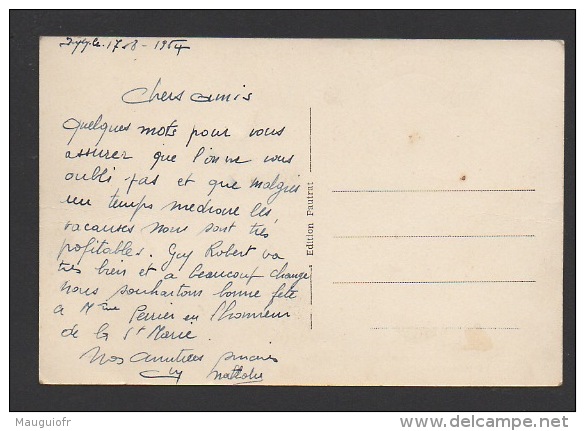 17-8-1954
Chers amis
Quelques mots pour vous
assurer que l'on ne vous
oubli pas et que malgres
un temps mediocre les
vacances nous sont très
profitables. Guy Robert va
très bien et a beaucoup changé
nous souhaitons bonne fête
a Mme Perrier en l'honneur
de la Ste Marie.
Nos amitiées
Edition Pautrat
Mauguiofr
www.delcampe.net